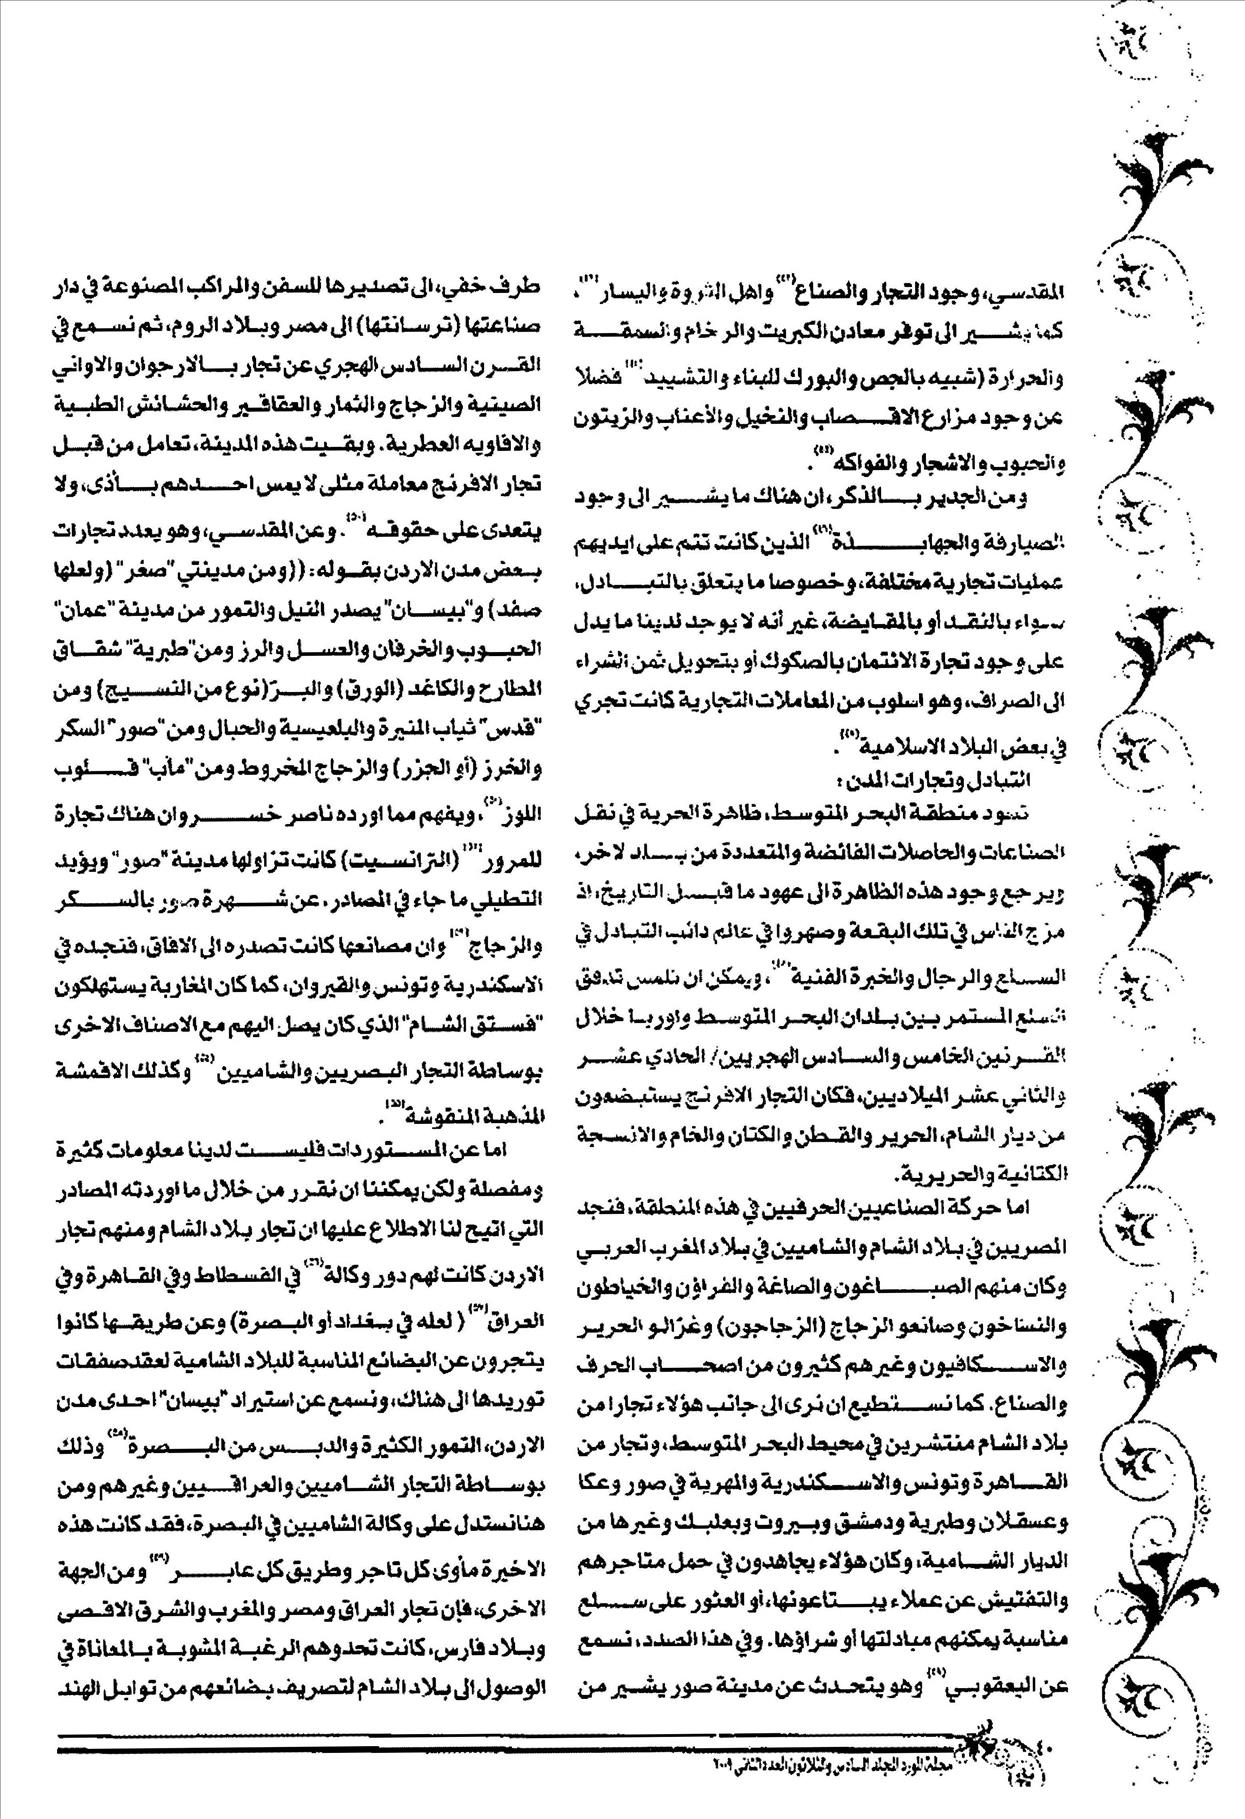 المقدسي، وجود التجار والصناع واهل الثروة واليسار،
كما يشير الى توفر معادن الكبريت والرخام والسمقة
والحرارة (شبيه بالجص والبورك للبناء والتشييد) فضلا
عن وجود مزارع الاقصاب والنخيل والأعناب والزيتون
والحبوب والاشجار والفواكه.
ومن الجدير بالذكر، ان هناك ما يشير الى وجود
الصيارفة والجهابذة الذين كانت تتم على ايديهم
عمليات تجارية مختلفة، وخصوصا ما يتعلق بالتبادل،
سواء بالنقد أو بالمقايضة، غير أنه لا يوجد لدينا ما يدل
على وجود تجارة الائتمان بالصكوك أو بتحويل ثمن الشراء
الى الصراف، وهو اسلوب من المعاملات التجارية كانت تجري
في بعض البلاد الاسلامية.
التبادل وتجارات المدن:
تسود منطقة البحر المتوسط، ظاهرة الحرية في نقل
الصناعات والحاصلات الفائضة والمتعددة من بلد لاخر،
ويرجع وجود هذه الظاهرة الى عهود ما قبل التاريخ، اذ
مزج الناس في تلك البقعة وصهروا في عالم دائب التبادل في
السلع والرجال والخبرة الفنية، ويمكن ان نلمس تدفق
السلع المستمر بين بلدان البحر المتوسط واوربا خلال
القرنين الخامس والسادس الهجريين/ الحادي عشر
والثاني عشر الميلاديين، فكان التجار الافرنج يستبضعون
من ديار الشام، الحرير والقطن والكتان والخام والانسجة
الكتانية والحريرية.
اما حركة الصناعيين الحرفيين في هذه المنطقة، فنجد
المصريين في بلاد الشام والشاميين في بلاد المغرب العربي
وكان منهم الصباغون والصاغة والفراؤن والخياطون
والنساخون وصانعو الزجاج (الزجاجون) وغزالو الحرير
والاسكافيون وغيرهم كثيرون من اصحاب الحرف
والصناع. كما نستطيع ان نرى الى جانب هؤلاء تجارا من
بلاد الشام منتشرين في محيط البحر المتوسط، وتجار من
القاهرة وتونس والاسكندرية والمهرية في صور وعكا
وعسقلان وطبرية ودمشق وبيروت وبعلبك وغيرها من
الديار الشامية، وكان هؤلاء يجاهدون في حمل متاجرهم
والتفتيش عن عملاء يبتاعونها، أو العثور على سلع
مناسبة يمكنهم مبادلتها أو شراؤها. وفي هذا الصدد، نسمع
عن اليعقوبي(٤٩) وهو يتحدث عن مدينة صور يشير من
طرف خفي، الى تصديرها للسفن والمراكب المصنوعة في دار
صناعتها (ترسانتها) الى مصر وبلاد الروم، ثم نسمع في
القرن السادس الهجري عن تجار بالارجوان والاواني
الصينية والزجاج والثمار والعقاقير والحشائش الطبية
والافاويه العطرية. وبقيت هذه المدينة، تعامل من قبل
تجار الافرنج معاملة مثلى لا يمس احدهم بأذى، ولا
يتعدى على حقوقه(٥٠). وعن المقدسي، وهو يعدد تجارات
بعض مدن الاردن بقوله: ((ومن مدينتي "صغر" (ولعلها
صفد) و"بيسان" يصدر النيل والتمور من مدينة "عمان"
الحبوب والخرفان والعسل والرز ومن"طبرية" شقاق
المطارح والكاغد (الورق) والبز(نوع من النسيج) ومن
"قدس" ثياب المنيرة والبلعيسية والحبال ومن "صور" السكر
والخرز (أو الجزر) والزجاج المخروط ومن "مآب" قلوب
اللوز، ويفهم مما اورده ناصر خسرو ان هناك تجارة
للمرور (الترانسيت) كانت تزاولها مدينة "صور" ويؤيد
التطيلي ما جاء في المصادر، عن شهرة صور بالسكر
والزجاج وان مصانعها كانت تصدره الى الافاق، فنجده في
الاسكندرية وتونس والقيروان، كما كان المغاربة يستهلكون
"فستق الشام" الذي كان يصل اليهم مع الاصناف الاخرى
بوساطة التجار البصريين والشاميين وكذلك الاقمشة
المذهبة المنقوشة.
اما عن المستوردات فليست لدينا معلومات كثيرة
ومفصلة ولكن يمكننا ان نقرر من خلال ما اوردته المصادر
التي اتيح لنا الاطلاع عليها ان تجار بلاد الشام ومنهم تجار
الاردن كانت لهم دور وكالة(٥٦) في الفسطاط وفي القاهرة وفي
العراق(٥٧) ( لعله في بغداد أو البصرة) وعن طريقها كانوا
يتجرون عن البضائع المناسبة للبلاد الشامية لعقد صفقات
توريدها الى هناك، ونسمع عن استيراد "بيسان" احدى مدن
الاردن، التمور الكثيرة والدبس من البصرة(٥٨) وذلك
بوساطة التجار الشاميين والعراقيين وغيرهم ومن
هنانستدل على وكالة الشاميين في البصرة، فقد كانت هذه
الاخيرة مأوى كل تاجر وطريق كل عابر(٥٩) ومن الجهة
الاخرى، فإن تجار العراق ومصر والمغرب والشرق الاقصى
وبلاد فارس، كانت تحدوهم الرغبة المشوبة بالمعاناة في
الوصول الى بلاد الشام لتصريف بضائعهم من توابل الهند
٤٠
مجلة المورد المجلد السادس والثلاثون العدد الثاني ٢٠٠٩